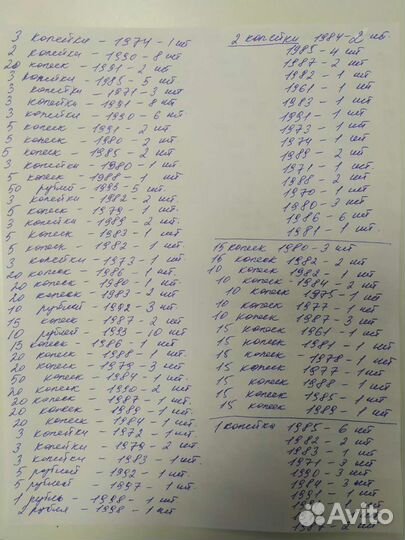 3 копейки - 1974 - 1 шт
2 копейки - 1990 - 8 шт
20 копеек - 1991 - 2 шт
3 копейки - 1985 - 5 шт
3 копейки - 1971 - 3 шт
3 копейки - 1991 - 8 шт
3 копейки - 1990 - 6 шт
5 копеек - 1991 - 2 шт
5 копеек - 1980 - 2 шт
5 копеек - 1986 - 2 шт
3 копейки - 1980 - 1 шт
5 копеек - 1988 - 1 шт
50 рублей - 1993 - 5 шт.
3 копейки - 1982 - 2 шт
5 копеек - 1979 - 1 шт
3 копейки - 1989 - 2 шт
5 копеек - 1983 - 1 шт
5 копеек - 1982 - 1 шт
3 копейки - 1973 - 1 шт
20 копеек - 1986 - 1 шт.
20 копеек - 1980 - 1 шт
20 копеек - 1983 - 2 шт
10 рублей - 1992 - 3 шт
15 копеек - 1987 - 2 шт
10 рублей - 1993 - 10 шт
15 копеек - 1986 - 1 шт
20 копеек - 1988 - 1 шт
20 копеек - 1979 - 3 шт
50 копеек - 1984 - 1 шт
20 копеек - 1990 - 2 шт
20 копеек - 1987 - 1 шт
20 копеек - 1989 - 1 шт
20 копеек - 1984 - 1 шт
3 копейки - 1972 - 1 шт
3 копейки - 1979 - 2 шт
3 копейки - 1983 - 1 шт
5 рублей - 1992 - 1 шт
5 рублей - 1998 - 1 шт
1 рубль - 1998 - 1 шт
2 рубля - 1998 - 1 шт
2 копейки 1984 - 2 шт
1985 - 4 шт
1987 - 2 шт
1982 - 1 шт
1961 - 1 шт
1983 - 1 шт
1991 - 1 шт
1973 - 1 шт
1979 - 1 шт
1989 - 2 шт
1971 - 1 шт
1988 - 2 шт
1970 - 1 шт
1980 - 3 шт
1986 - 6 шт
1981 - 1 шт
15 копеек 1980 - 3 шт
15 копеек 1982 - 2 шт
10 копеек 1982 - 1 шт
10 копеек 1984 - 2 шт
10 копеек 1975 - 1 шт
10 копеек 1977 - 1 шт
10 копеек 1987 - 3 шт
15 копеек 1961 - 1 шт
15 копеек 1981 - 1 шт
15 копеек - 1978 - 1 шт
15 копеек 1977 - 1 шт
15 копеек 1988 - 1 шт
15 копеек 1985 - 1 шт
15 копеек 1989 - 1 шт
1 копейка 1985 - 6 шт
1982 - 2 шт
1983 - 1 шт
1971 - 3 шт
1990 - 3 шт
1984 - 3 шт
1991 - 1 шт
Avito